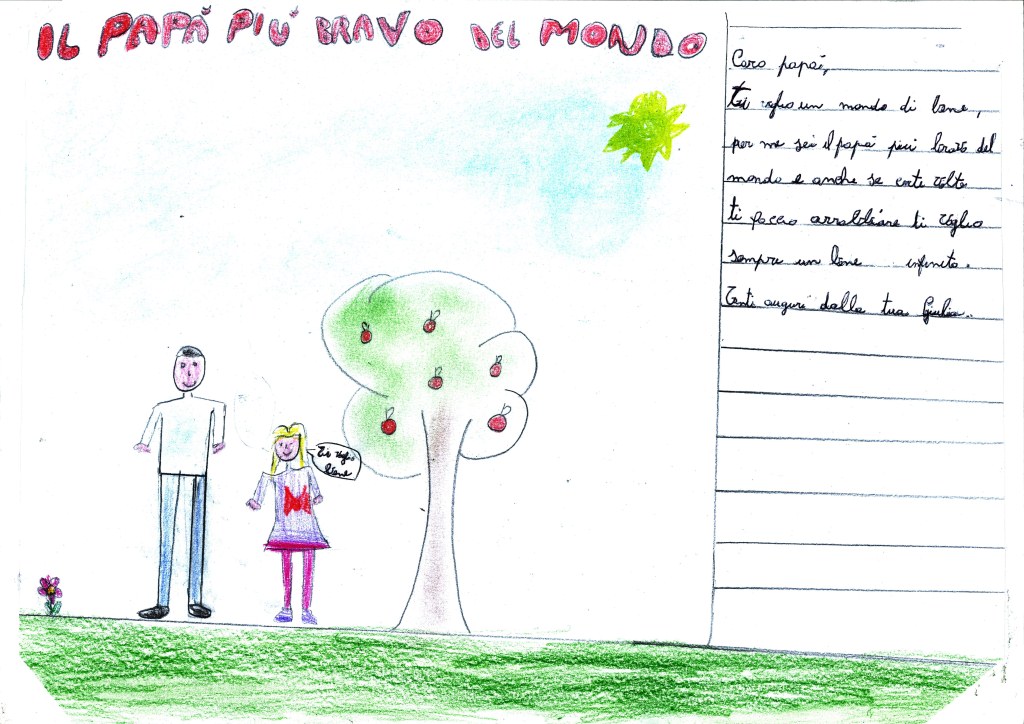 IL PAPÀ PIÙ BRAVO DEL MONDO
Caro papà,
ti voglio un mondo di bene,
per me sei il papà più bravo del
mondo e anche se certe volte
ti faccio arrabbiare ti voglio
sempre un bene infinito.
Tanti auguri dalla tua Giulia.
Ti voglio
bene